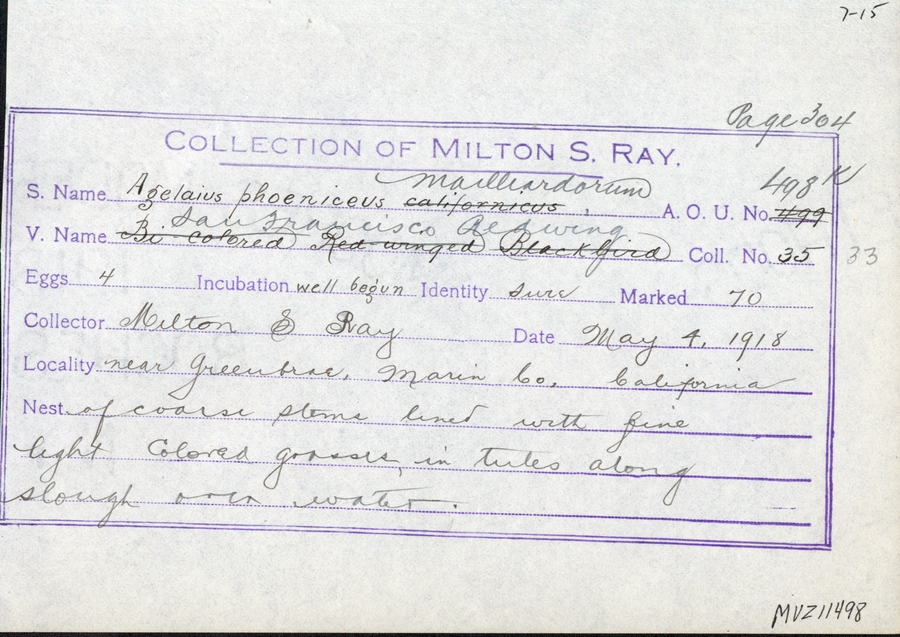 7-15
Page 304
COLLECTION OF MILTON S. RAY.
mailliardorum
498 K
S. Name Agelaius phoeniceus californicus, A. O. U. No. 499
San Francisco Redwing
V. Name Bi-colored Red-winged Blackbird Coll. No. 35 33
Eggs 4 Incubation well begun Identity sure Marked 70
Collector Milton S Ray Date May 4, 1918
Locality near Greenbrae, Marin Co. California
Nest of coarse stems lined with fine
light colored grasses, in tules along
slough over water.
MVZ11498